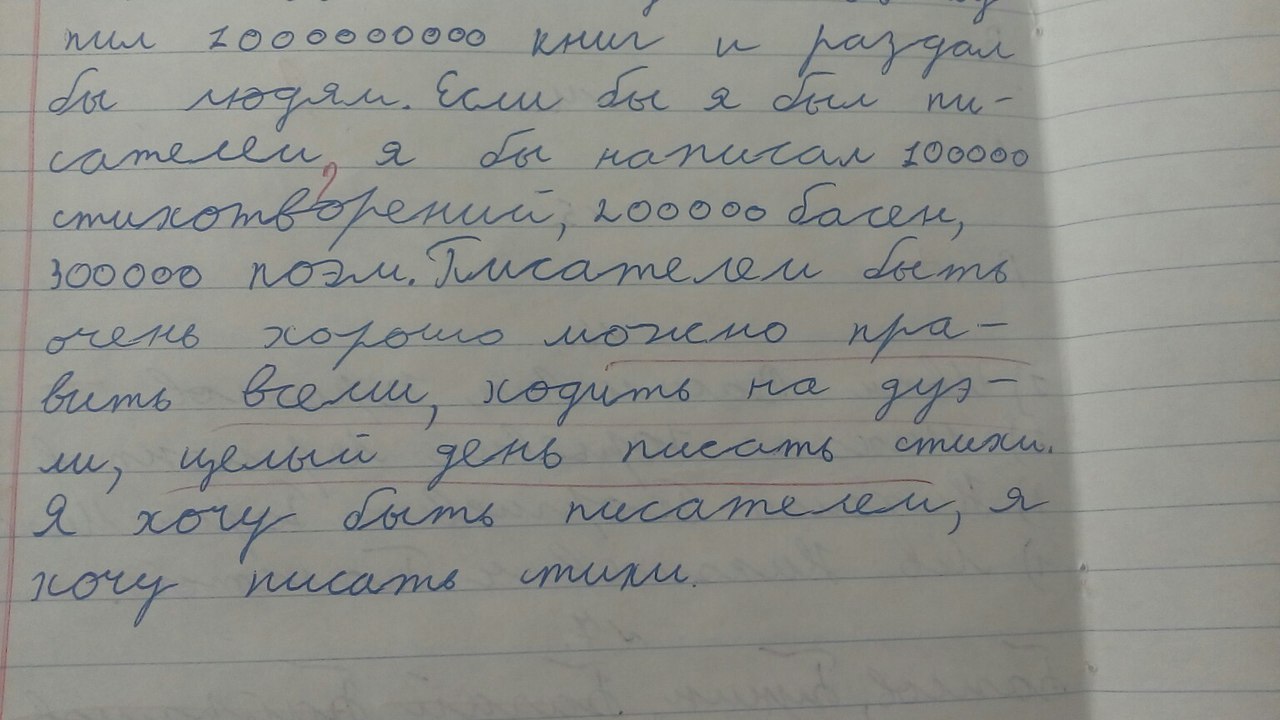 пил 1000000000 книг и раздал
бы людям. Если бы я был пи-
сателем, я бы написал 100000
стихотворений, 200000 басен,
300000 поэм. Писателем быть
очень хорошо можно пра-
вить всеми, ходить на дуэ-
ли, целый день писать стихи.
Я хочу быть писателем, я
хочу писать стихи.